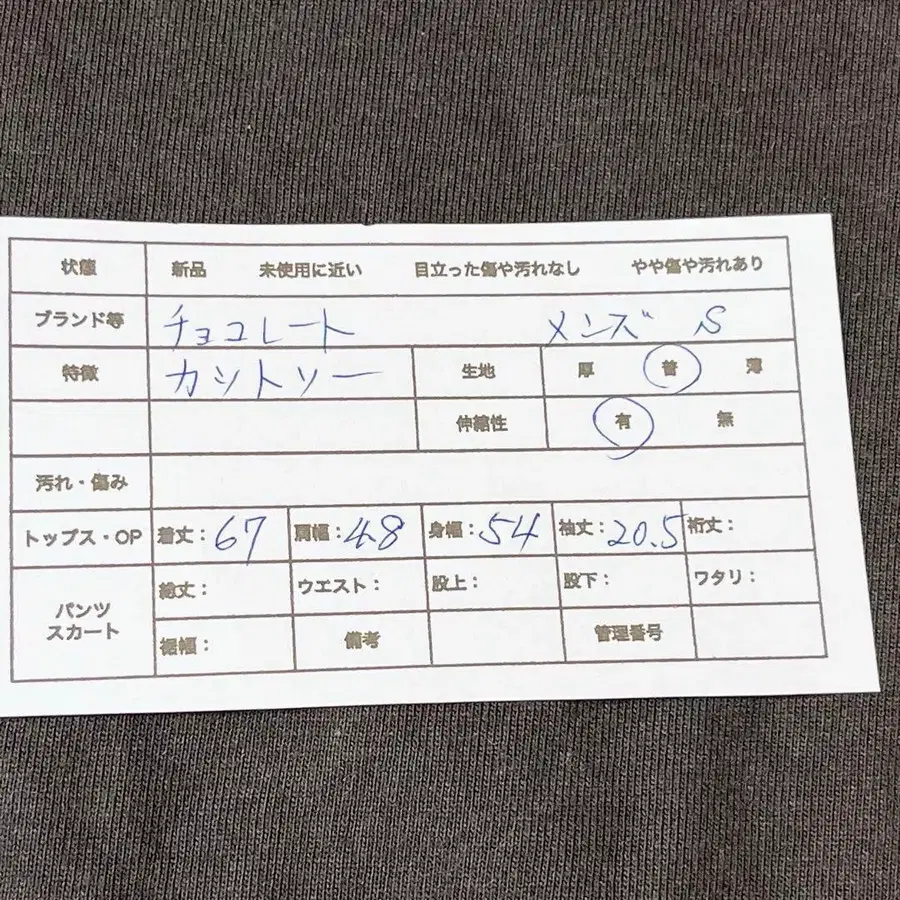 状態 新品 未使用に近い 目立った傷や汚れなし やや傷や汚れあり
ブランド等 チョコレート メンズ S
特徴 カットソー 生地 厚 普 薄
伸縮性 有 無
汚れ・傷み
トップス・OP 着丈：67 肩幅：48 身幅：54 袖丈：20.5 裄丈：
パンツ スカート 総丈： ウエスト： 股上： 股下： ワタリ：
裾幅： 備考 管理番号